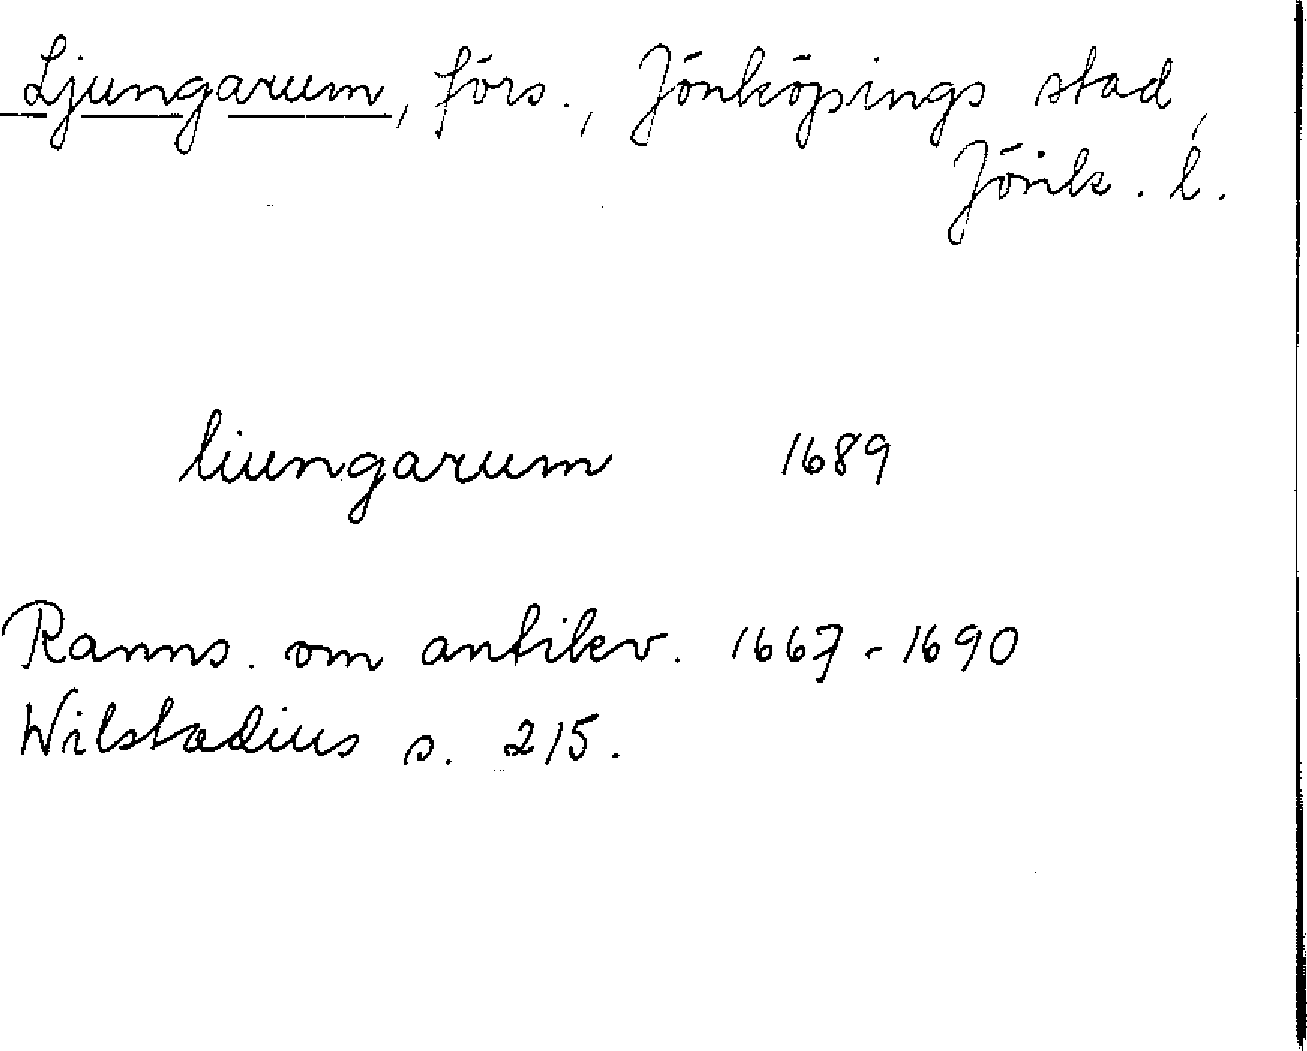 Ljungarum, förs., Jönköpings stad,
Jönk. l.
liungarum 1689
Ranns. om antikv. 1667-1690
Wilstadius s. 215.